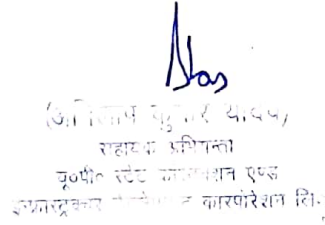 कुमार यादव)
सहायक अभियन्ता
यू०पी० स्टेट कन्सट्रक्शन एण्ड
इन्फ्रास्ट्रक्चर कारपोरेशन लि०